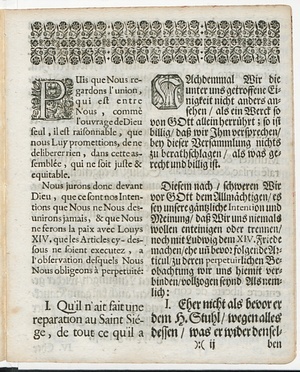 PUis que Nous re-
gardons l'union,
qui est entre
Nous, comme
l'ouvrage de Dieu
seul, il est raisonnable, que
nous Luy promettions, de ne
deliberer rien, dans cette as-
semblée, qui ne soit juste &
equitable.
Nous jurons donc devant
Dieu, que ce sont nos Inten-
tions que Nous ne Nous des-
unirons jamais, & que Nous ne
ferons la paix avec Louys
XIV, que les Articles cy-des-
sous ne soient executez, a
l'observation desquels Nous
Nous obligeons à perpetuité:
I. Qu'il n'ait fait une
reparation au Saint Sié-
ge, de tout ce qu'il a
NAchdemmal Wir die
unter uns getroffene Ei-
nigkeit nicht anders an-
sehen / als ein Werck so
von GOtt allein herrührt; so ist
billig / daß wir Ihm versprechen /
bey dieser Versammlung nichts
zu berathschlagen / als was ge-
recht und billig ist.
Diesem nach / schweren Wir
vor GOtt dem Allmächtigen / es
sey unser gäntzliche Intention und
Meinung / daß Wir uns niemals
wollen enteinigen oder trennen /
noch mit Ludwig dem XIV. Friede
machen / ehe und bevor folgende Ar-
tical zu deren perpetuirlichen Be-
obachtung wir uns hiemit ver-
binden / vollzogen seynd Als nem-
lich:
I. Eher nicht als bevor er
dem H. Stuhl / wegen alles
dessen / was er wider densel-
)( ij
ben